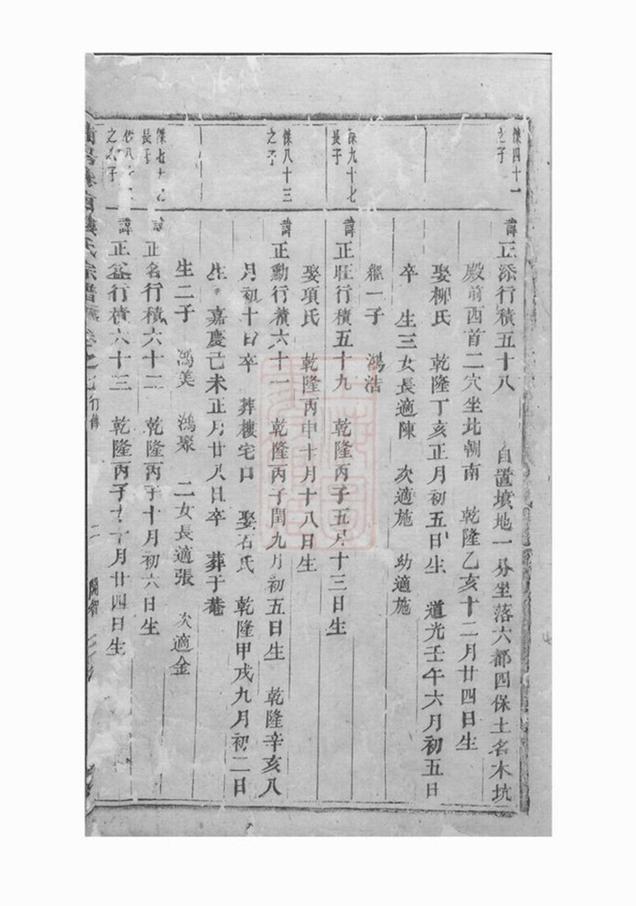 傑四十一
之子
諱正添行積五十八 自置墳地一分坐落六都四保土名木坑
殿前西首二穴坐北朝南 乾隆乙亥十二月廿四日生
娶柳氏 乾隆丁亥正月初五日生 道光壬午六月初五日
卒 生三女長適陳 次適施 幼適施
繼一子 鴻浩
傑九十七
長子
諱正旺行積五十九 乾隆丙子五月十三日生
娶項氏 乾隆丙申十月十八日生
傑八十三
之子
諱正動行積六十一 乾隆丙子閏九月初五日生 乾隆辛亥八
月初十日卒 葬樓宅口 娶石氏 乾隆甲戌九月初二日
生 嘉慶己未正月廿八日卒 葬于巷
生二子 鴻美 鴻聚 二女長適張 次適金
傑七十
長子
諱正名行積六十二 乾隆丙子十月初六日生
之子
諱正 行積六十三 乾隆丙子 月廿四日生
氏宗譜 卷之 行傳